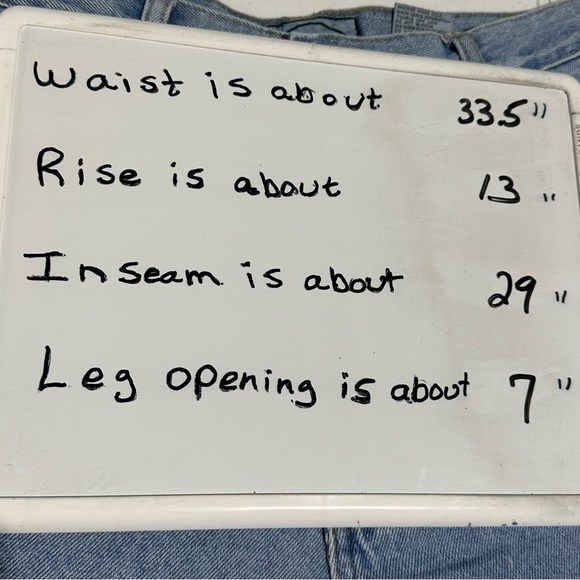 Waist is about 33.5"
Rise is about 13"
Inseam is about 29"
Leg opening is about 7"